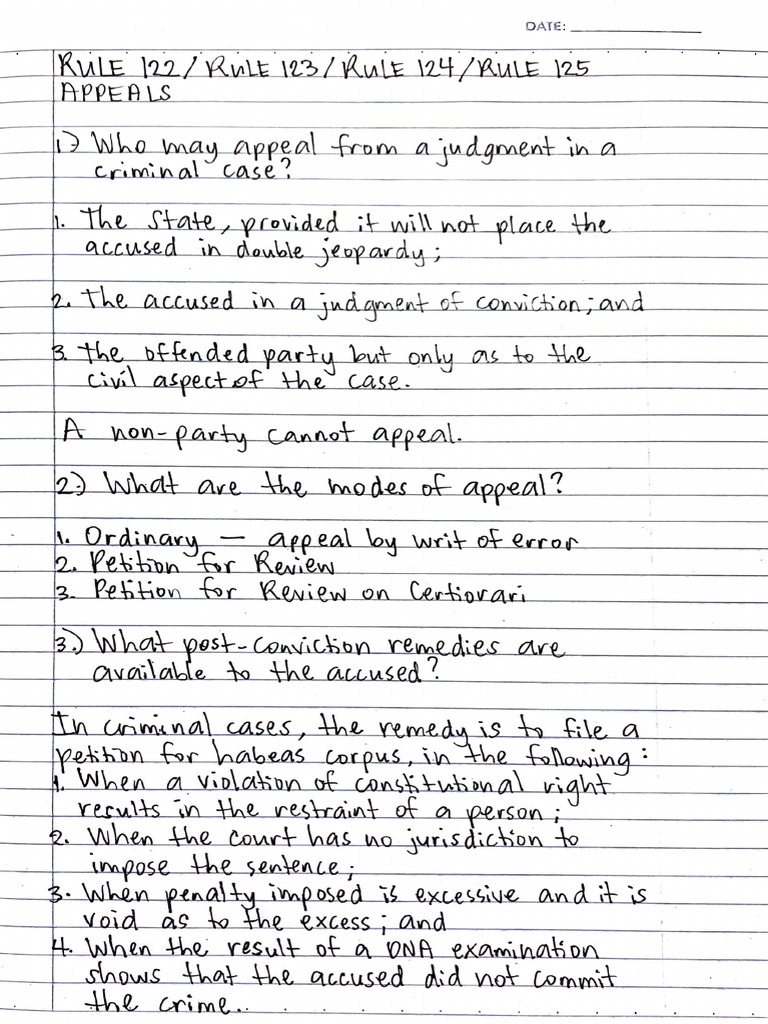 DATE:
RULE 122/RULE 123/RULE 124/RULE 125
APPEALS
1.) Who may appeal from a judgment in a
criminal case?
1. The State, provided it will not place the
accused in double jeopardy;
2. The accused in a judgment of conviction; and
3. the offended party but only as to the
civil aspect of the case.
A non-party cannot appeal.
2.) What are the modes of appeal?
1. Ordinary — appeal by writ of error
2. Petition for Review
3. Petition for Review on Certiorari
3.) What post-conviction remedies are
available to the accused?
In criminal cases, the remedy is to file a
petition for habeas corpus, in the following:
1. When a violation of constitutional right
results in the restraint of a person;
2. When the court has no jurisdiction to
impose the sentence;
3. When penalty imposed is excessive and it is
void as to the excess; and
4. When the result of a DNA examination
shows that the accused did not commit
the crime..